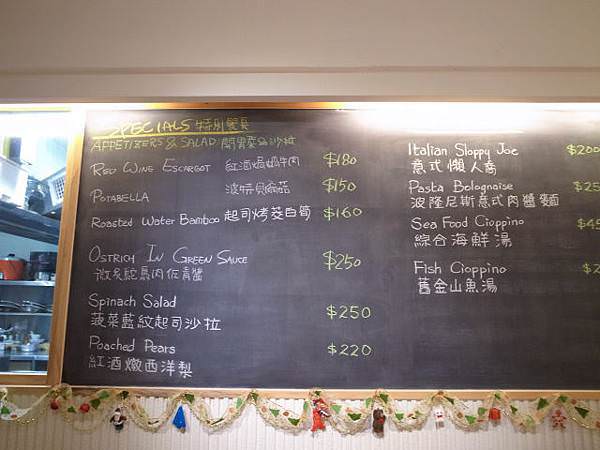 SPECIALS 特別餐點
APPETIZERS & SALAD 開胃菜&沙拉
RED WINE ESCARGOT 紅酒焗蝸牛肉 $180
POTABELLA 波特貝菇 $150
Roasted Water Bamboo 起司烤茭白筍 $160
OSTRICH IN GREEN SAUCE $250
微炙鴕鳥肉佐青醬
Spinach Salad $250
菠菜藍紋起司沙拉
Poached Pears $220
紅酒燉西洋梨
Italian Sloppy Joe $200
意式懶人喬
Pasta Bolognaise
波隆尼斯意式肉醬麵
Sea Food Cioppino
綜合海鮮湯
Fish Cioppino
舊金山魚湯